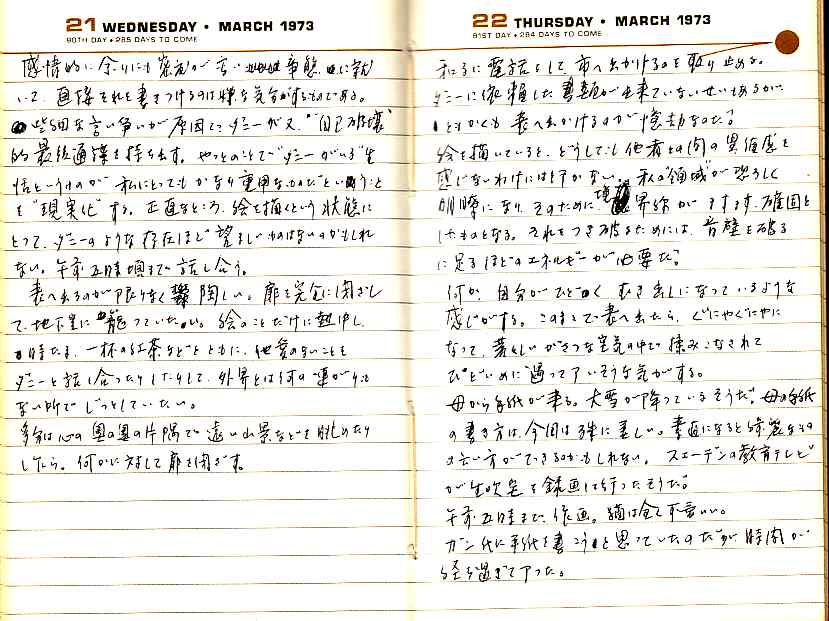 21 WEDNESDAY • MARCH 1973
80TH DAY • 285 DAYS TO COME
感情的に余りにも密度が高い事態に就
いて、直接それを書きつけるのは嫌な気分がするものである。
些細な言い争いが原因で、ダニーが又、"自己破壊"
的最後通牒を持ち出す。やっとのことで"ダニーがいる"生
活というものが私にとってもかなり重要なものだということ
を"現実化"する。正直なところ、絵を描くという状態に
とって、ダニーのような存在ほど望ましいものはないのかもしれ
ない。午前五時頃まで話し合う。
表へ出るのが限りなく鬱陶しい。扉を完全に閉ざし
て、地下室に籠っていたい。絵のことだけに熱中し、
時たま、一杯の紅茶などとともに、他愛のないことを
ダニーと話し合ったりしたりして、外界とは何の連がりも
ない所でじっとしていたい。
多分は心の奥の奥の片隅で遠い山景などを眺めたり
しながら。何かに対して扉を閉ざす。
22 THURSDAY • MARCH 1973
81ST DAY • 284 DAYS TO COME
和子に電話をして市へ出かけるのを取り止める。
ダニーに依頼した書類が出来ていないせいもあるが、
ともかくも表へ出かけるのが億劫なのだ。
絵を描いていると、どうしても他者との間の異和感を
感じないわけには行かない。私の"領域"が恐ろしく
明瞭になり、そのために境界線がますます確固と
したものとなる。それをつき破るためには、音壁を破る
に足るほどのエネルギーが必要だ。
何か、自分がひどくむき出しになっているような
感じがする。このままで表へ出たら、ぐにゃぐにゃに
なって、荒々しいがさつな空気の中で揉みこなされて
ひどいめに遇ってしまいそうな気がする。
母から手紙が来る。大雪が降っているそうだ。母の手紙
の書き方は、今回は殊に美しい。素直になると綺麗なもの
の言い方ができるのかもしれない。スエーデンの教育テレビ
が生吹是を録画に行ったそうだ。
午前五時まで、作画。猫は全く不言い。
ガン氏に手紙を書こうと思っていたのだが時間が
経ち過ぎて了った。